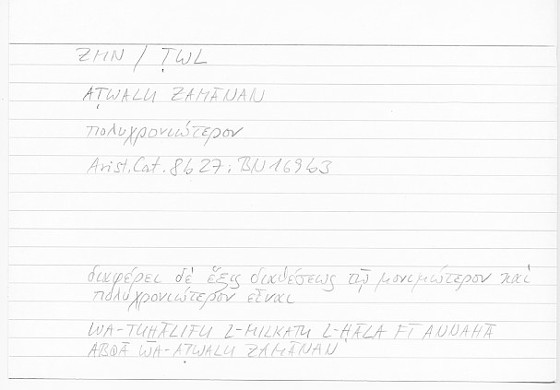 ZMN / ṬWL
AṬWALU ZAMĀNAN
πολυχρονιώτερον
Arist. Cat. 8b27; BN 169b3
διαφέρει δὲ ἕξις διαθέσεως τῷ μονιμώτερον καὶ
πολυχρονιώτερον εἶναι
WA-TUḪĀLIFU L-MILKATU L-ḤĀLA FĪ ANNAHĀ
ABQĀ WA-AṬWALU ZAMĀNAN